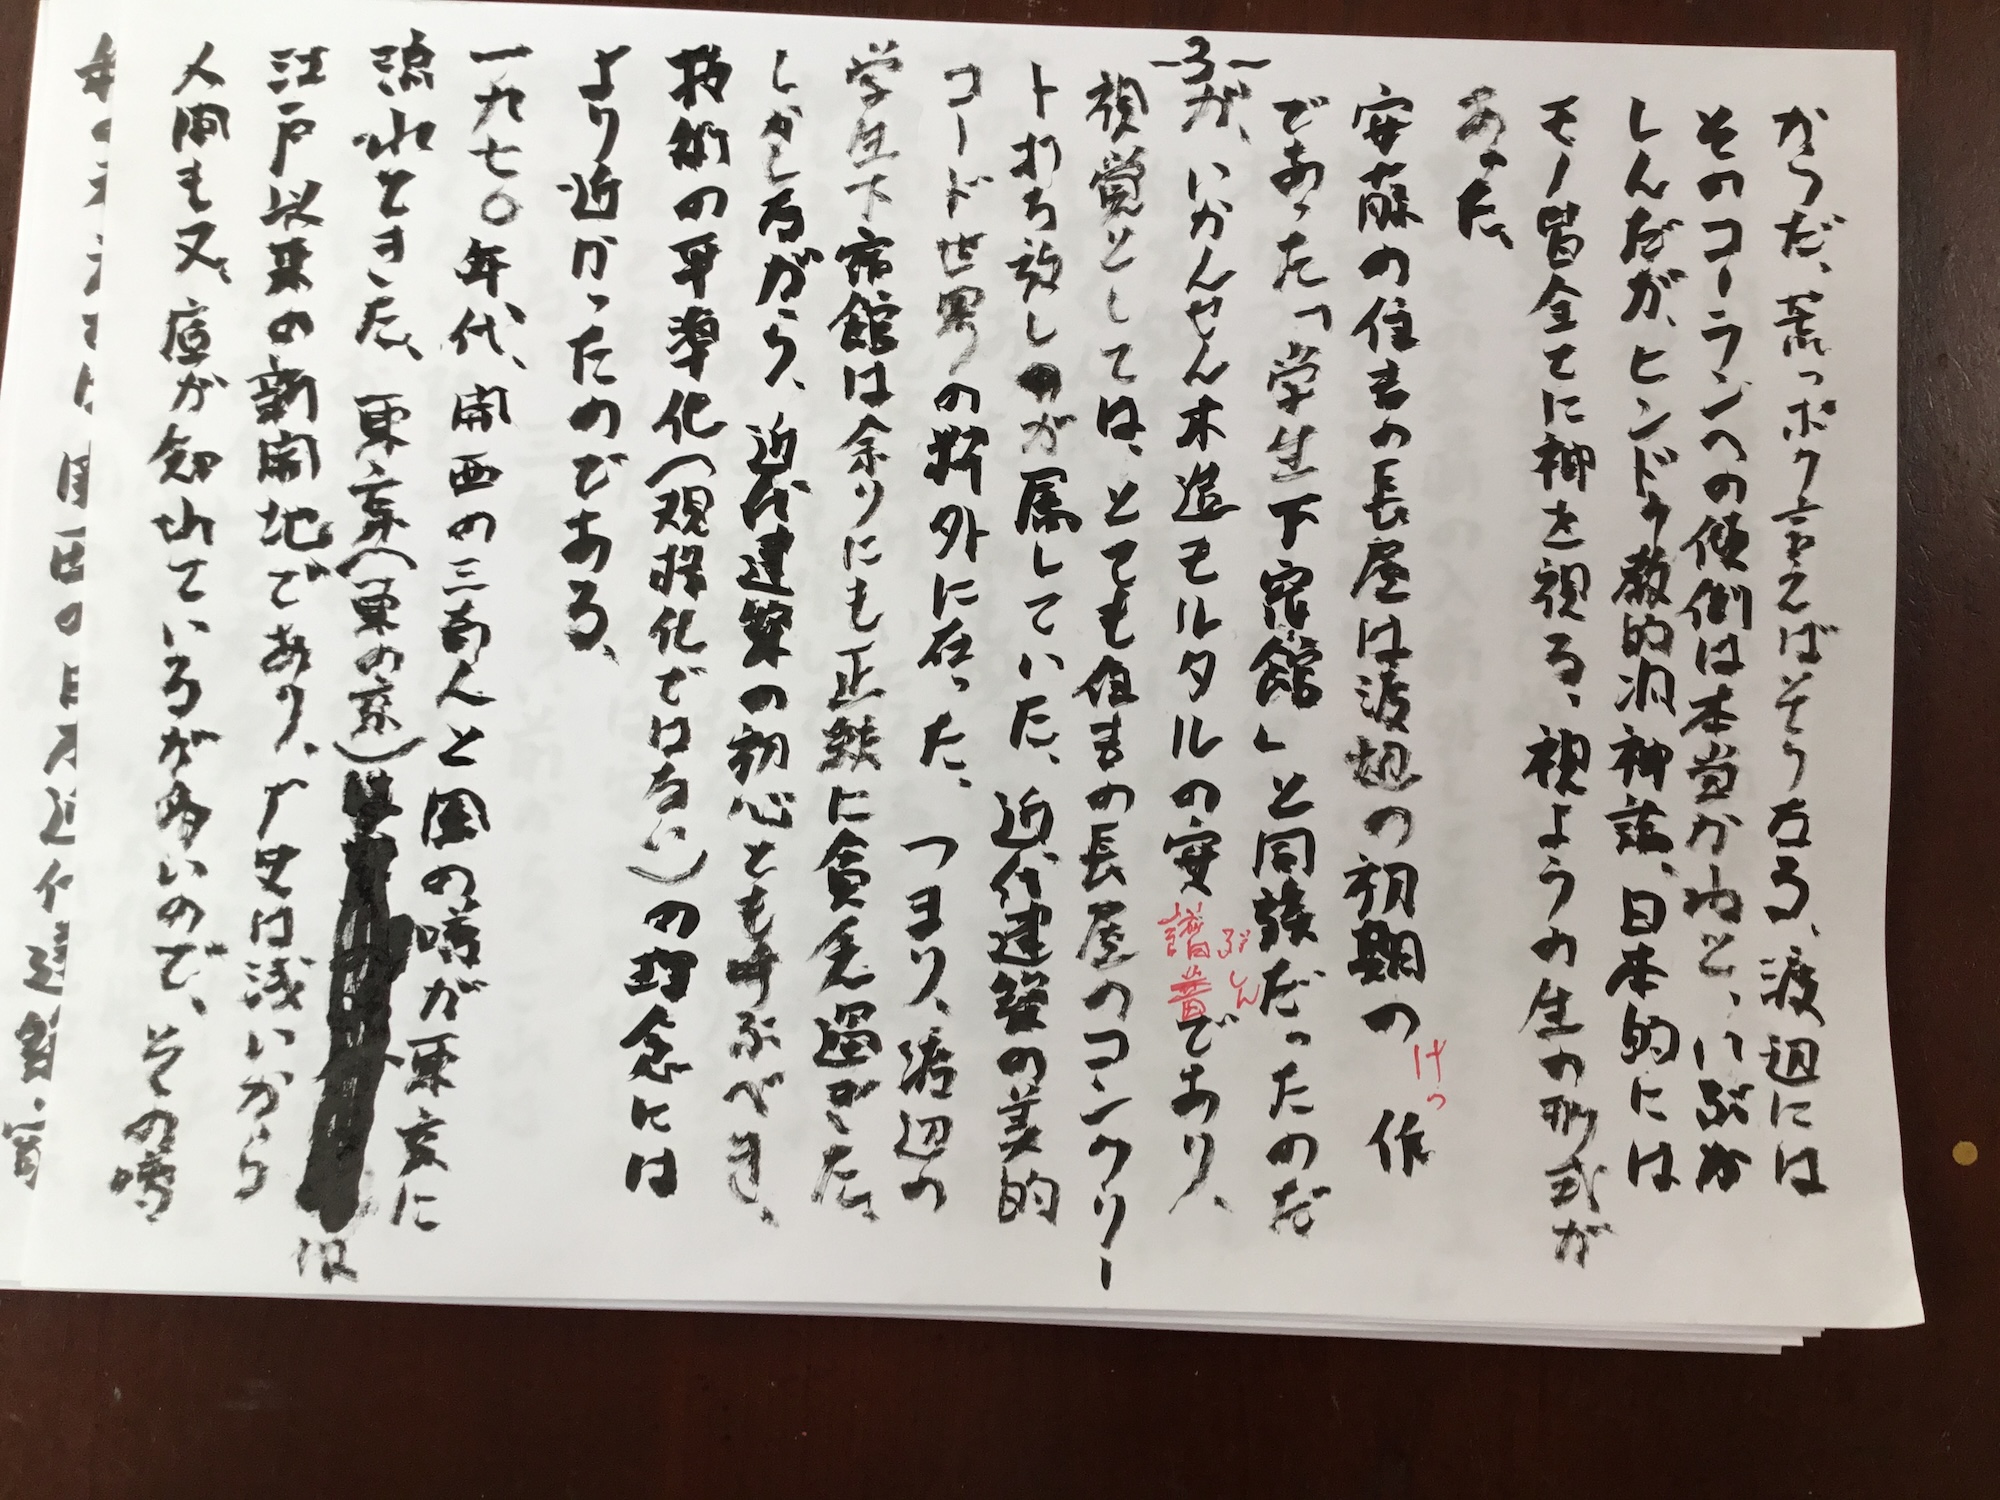 からだ、荒っポク言えばそうなる、渡辺には
そのコーランへの傾倒は本当かねと、いぶか
しんだが、ヒンドゥ教的汎神論、日本的には
モノ皆全てに神を視る、視ようの生の形式が
あった、
安藤の住吉の長屋は渡辺の初期の けっ 作
であった「学生下宿館」と同族だったのだ
-3-
が、いかんせん木造モルタルの安普請であり、
ぶしん
視覚としては、とても住吉の長屋のコンクリー
ト打ち放しのが属していた、近代建築の美的
コード世界の埒外に在った、つまり、渡辺の
学生下宿館は余りにも正統に貧乏過ぎた、
しかしながら、近代建築の初心とも呼ぶべき、
技術の平準化(規格化ではない)の理念には
より近かったのである、
一九七〇年代、関西の三奇人と風の噂が東京に
流れてきた、東京(東の京)は
江戸以来の新開地であり、歴史は浅いから
人間も又、底が知れているが多いので、その噂